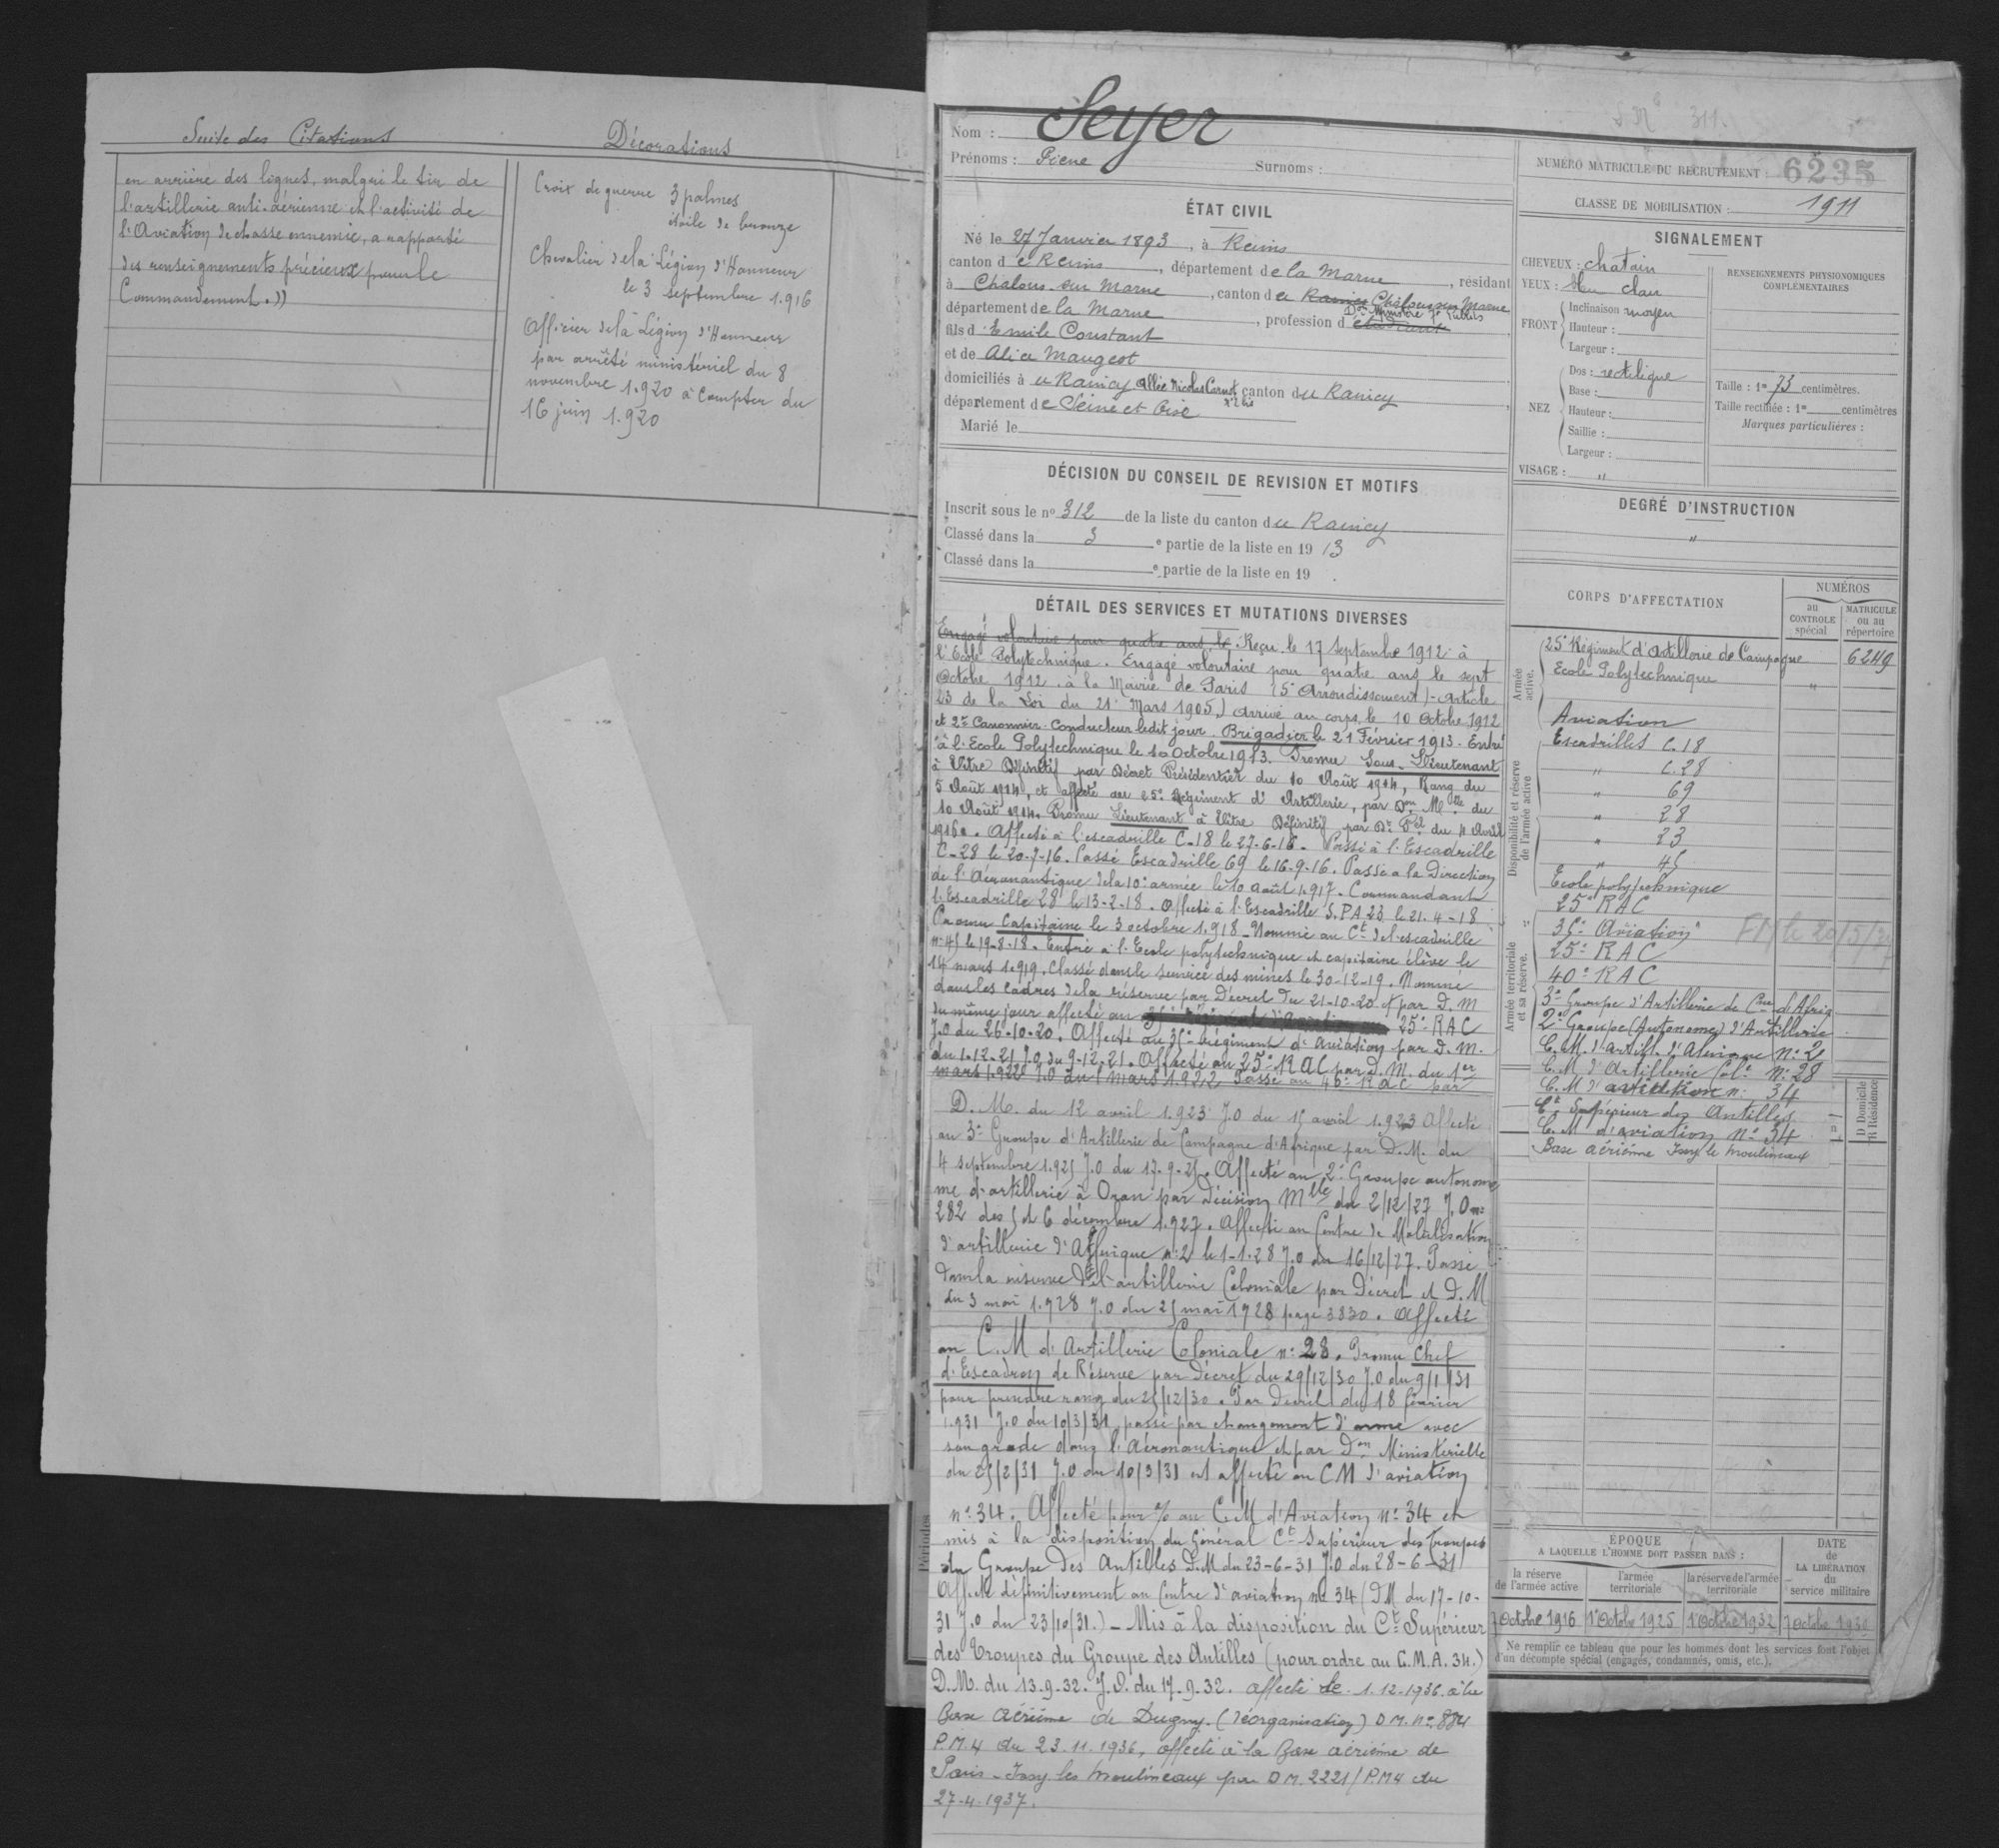 Suite des Citations
Décorations
en arrière des lignes, malgré le tir de
l'artillerie anti-aérienne et l'activité de
l'Aviation de chasse ennemie, a rapporté
des renseignements précieux pour le
Commandement.))
Croix de guerre 3 palmes
étoile de bronze
Chevalier de la Légion d'Honneur
le 3 septembre 1.916
Officier de la Légion d'Honneur
par arrêté ministériel du 8
novembre 1.920 à compter du
16 juin 1.920
Nom : Seyer
Prénoms : Pierre Surnoms :
ÉTAT CIVIL
Né le 27 Janvier 1893, à Reims
canton de Reims, département de la Marne, résidant
à Chalons-sur Marne, canton de Chalons sur Marne
département de la Marne, profession d étudiant
fils d Emile Constant
et de Alice Maugeot
domiciliés à u Raincy Allée Nicolas Carnot canton du Raincy
n° 2 bis
département de Seine et Oise
Marié le
DÉCISION DU CONSEIL DE REVISION ET MOTIFS
Inscrit sous le n° 312 de la liste du canton du Raincy
Classé dans la 3 e partie de la liste en 19 13
Classé dans la e partie de la liste en 19 .
DÉTAIL DES SERVICES ET MUTATIONS DIVERSES
Engagé volontaire pour quatre ans le Reçu le 17 Septembre 1912 à
l'Ecole Polytechnique. Engagé volontaire pour quatre ans le sept
Octobre 1912 à la Mairie de Paris (5e Arrondissement)-Article
23 de la Loi du 21 Mars 1905) Arrivé au corps le 10 Octobre 1912
et 2e Canonnier-Conducteur ledit jour. Brigadier le 21 Février 1913. Entré
à l'Ecole Polytechnique le 10 Octobre 1913. Promu Sous-Lieutenant
à Titre Définitif par Décret Présidentiel du 10 Août 1914, Rang du
5 Août 1914, et affecté au 25e Régiment d'Artillerie, par Don Mlle du
10 Août 1914. Promu Lieutenant à Titre Définitif par Dt Pel du 11 Avril
1916. Affecté à l'escadrille C-18 le 27-6-16. Passé à l'Escadrille
C-28 le 20-7-16. Passé Escadrille 69 le 16-9-16. Passé à la Direction
de l'Aéronautique de la 10e armée le 10 août 1.917. Commandant
l'Escadrille 28 le 13-2-18. Affecté à l'Escadrille S.PA 23 le 21-4-18
Promu Capitaine le 3 octobre 1.918 - Nommé au Ct de l'escadrille
n° 45 le 19-8-18. Entré à l'Ecole polytechnique et capitaine élève le
14 mars 1.919. Classé dans le service des mines le 30-12-19. Nommé
dans les cadres de la réserve par Décret du 21-10-20 et par D.M
du même jour affecté au 25e RAC
J.O du 26-10-20. Affecté au 35e Régiment d'Aviation par D.M.
du 1-12-21 J.O du 9-12-21. Affecté au 25e RAC par D.M. du 1er
mars 1.922 J.O du mars 1.922 Passé au 40e RAC par
D.M. du 12 avril 1.923 J.O du 15 avril 1.923 Affecté
au 3e Groupe d'Artillerie de Campagne d'Afrique par D.M. du
4 septembre 1.925 J.O du 17-9-25. Affecté au 2e Groupe autono
me d'artillerie à Oran par décision Mlle du 2/12/27 J.O n°
282 des 5 et 6 décembre 1.927. Affecté au Centre de Mobilisation
d'artillerie d'Afrique n° 2 le 1-1-28 J.O du 16/12/27. Passé
dans la réserve de l'artillerie Coloniale par Décret et D.M
du 3 mai 1.928 J.O du 25 mai 1928 page 3830. Affecté
au C.M d'Artillerie Coloniale n° 28. Promu Chef
d'Escadron de Réserve par Décret du 29/12/30 J.O du 9/1/31
pour prendre rang du 25/12/30. Par Décret du 18 février
1.931 J.O du 10/3/31, passé par changement d'arme avec
son grade dans l'Aéronautique et par Don Ministérielle
du 25/2/31 J.O du 10/3/31 est affecté au CM d'aviation
n° 34. Affecté pour % au C.M d'Aviation n° 34 et
mis à la disposition du Général Ct Supérieur des troupes
du Groupe des Antilles D.M du 23-6-31 J.O du 28-6-31
Affecté définitivement au Centre d'aviation n° 34 (DM du 17-10-
31 J.O du 23/10/31.) - Mis à la disposition du Ct Supérieur
des Troupes du Groupe des Antilles (pour ordre au C.M.A. 34.)
D.M. du 13.9.32. J.O. du 17.9.32. affecté le 1.12.1936 à la
Base Aérienne de Dugny. (réorganisation) D.M. n° 884
P.M.4 du 23.11.1936, affecté à la Base aérienne de
Paris-Issy les Moulineaux par DM. 2221/P.M4 du
27-4-1937.
311.
NUMÉRO MATRICULE DU RECRUTEMENT : 6235
CLASSE DE MOBILISATION : 1911
SIGNALEMENT
CHEVEUX : chatain
YEUX : bleu clair
FRONT
Inclinaison moyen
Hauteur :
Largeur :
NEZ
Dos : rectiligne
Base :
Hauteur :
Saillie :
Largeur :
VISAGE : "
RENSEIGNEMENTS PHYSIONOMIQUES
COMPLÉMENTAIRES
Taille : 1m 73 centimètres.
Taille rectifiée : 1m centimètres
Marques particulières :
DEGRÉ D'INSTRUCTION
"
CORPS D'AFFECTATION
NUMÉROS
au
CONTROLE
spécial
MATRICULE
ou au
répertoire
Armée
active.
25e Régiment d'Artillerie de Campagne 6249
Ecole Polytechnique "
Disponibilité et réserve
de l'armée active
Aviation
Escadrilles C.18
" C.28
" 69
" 28
" 23
" 45
Ecole polytechnique
25e RAC
Armée territoriale
et sa réserve.
35e Aviation
25e RAC
40e RAC
3e Groupe d'Artillerie de Cne d'Afriq
2e Groupe (Autonome) d'Artillerie
C.M. d'artill. d'Afrique N° 2
C.M d'Artillerie Cole N° 28
C.M d'aviation n° 34
Ct Supérieur des Antilles
C.M d'aviation N° 34
Base aérienne Issy le Moulineaux
D Domicile
R Résidence
Périodes
ÉPOQUE
A LAQUELLE L'HOMME DOIT PASSER DANS :
la réserve
de l'armée active
l'armée
territoriale
la réserve de l'armée
territoriale
DATE
de
LA LIBÉRATION
du
service militaire
7 Octobre 1916 1er Octobre 1925 1er Octobre 1932 7 Octobre
Ne remplir ce tableau que pour les hommes dont les services font l'objet
d'un décompte spécial (engagés, condamnés, omis, etc.).